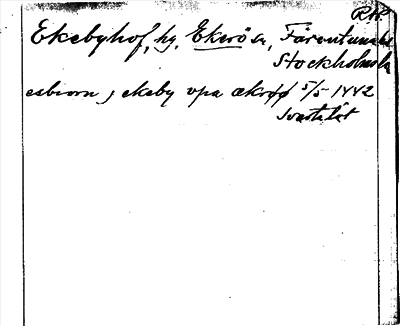 R.W.
Ekebyhof, hg. Ekerö sn, Färentuna hd
Stockholms län
esbiorn j ekeby vpa ækrøø 5/5 1442
Svartslåt